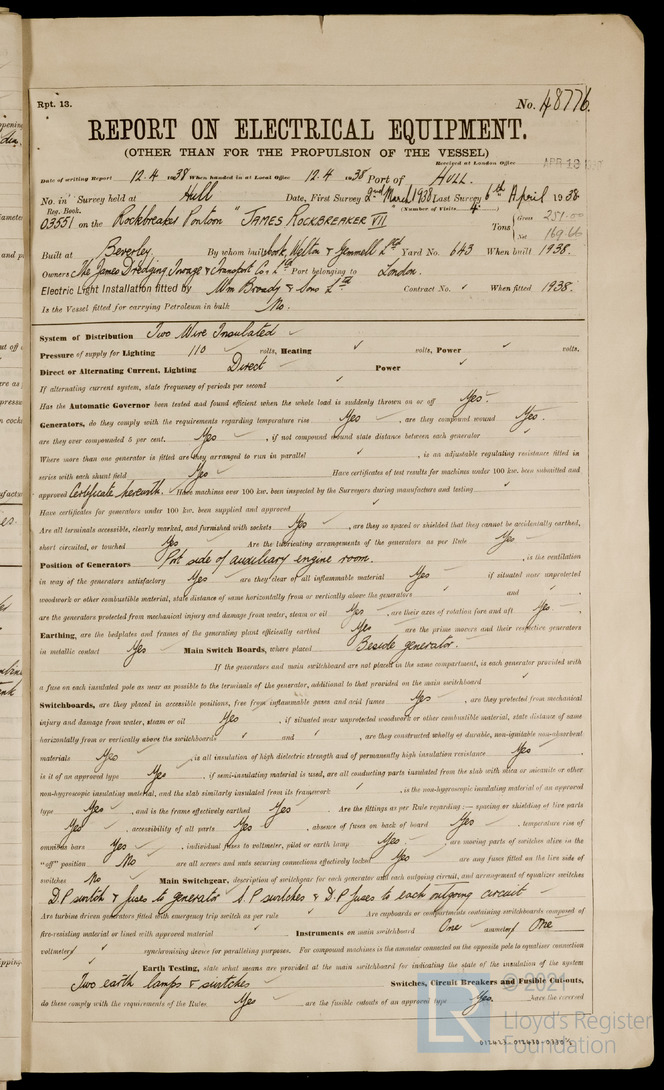 Rpt. 13.
No. 48776.
REPORT ON ELECTRICAL EQUIPMENT.
(OTHER THAN FOR THE PROPULSION OF THE VESSEL)
Received at London Office APR 19
Date of writing Report 12.4.1938 When handed in at Local Office 12.4.1938 Port of HULL.
No. in Survey held at Hull Date, First Survey 2nd March 1938 Last Survey 6th April 1938
Reg. Book. (Number of Visits 4)
03551 on the Rockbreaker Pontoon "JAMES ROCKBREAKER VII" Tons Gross 251.00
Net 169.66
Built at Beverley By whom built Cook, Welton & Gemmell Ltd Yard No. 643 When built 1938.
Owners The James Dredging Towage & Transport Co. Ltd Port belonging to London.
Electric Light Installation fitted by Wm Broady & Sons Ltd Contract No. ✓ When fitted 1938.
Is the Vessel fitted for carrying Petroleum in bulk No.
System of Distribution Two Wire Insulated ✓
Pressure of supply for Lighting 110 volts, Heating ✓ volts, Power ✓ volts,
Direct or Alternating Current, Lighting Direct Power ✓
If alternating current system, state frequency of periods per second ✓
Has the Automatic Governor been tested and found efficient when the whole load is suddenly thrown on or off Yes.
Generators, do they comply with the requirements regarding temperature rise Yes ✓, are they compound wound Yes.
are they over compounded 5 per cent. Yes ✓, if not compound wound state distance between each generator ✓
Where more than one generator is fitted are they arranged to run in parallel ✓, is an adjustable regulating resistance fitted in
series with each shunt field Yes ✓ Have certificates of test results for machines under 100 kw. been submitted and
approved Certificate herewith. Have machines over 100 kw. been inspected by the Surveyors during manufacture and testing ✓
Have certificates for generators under 100 kw. been supplied and approved ✓
Are all terminals accessible, clearly marked, and furnished with sockets Yes ✓, are they so spaced or shielded that they cannot be accidentally earthed,
short circuited, or touched Yes ✓ Are the lubricating arrangements of the generators as per Rule Yes ✓
Position of Generators Port side of auxiliary engine room. , is the ventilation
in way of the generators satisfactory Yes ✓ are they clear of all inflammable material Yes ✓ if situated near unprotected
woodwork or other combustible material, state distance of same horizontally from or vertically above the generators ✓ and ✓,
are the generators protected from mechanical injury and damage from water, steam or oil Yes ✓, are their axes of rotation fore and aft Yes.
Earthing, are the bedplates and frames of the generating plant efficiently earthed Yes are the prime movers and their respective generators
in metallic contact Yes Main Switch Boards, where placed Beside generator.
If the generators and main switchboard are not placed in the same compartment, is each generator provided with
a fuse on each insulated pole as near as possible to the terminals of the generator, additional to that provided on the main switchboard ✓
Switchboards, are they placed in accessible positions, free from inflammable gases and acid fumes Yes ✓, are they protected from mechanical
injury and damage from water, steam or oil Yes ✓, if situated near unprotected woodwork or other combustible material, state distance of same
horizontally from or vertically above the switchboards ✓ and ✓, are they constructed wholly of durable, non-ignitable non-absorbent
materials Yes ✓, is all insulation of high dielectric strength and of permanently high insulation resistance Yes ✓,
is it of an approved type Yes ✓, if semi-insulating material is used, are all conducting parts insulated from the slab with mica or micanite or other
non-hygroscopic insulating material, and the slab similarly insulated from its framework ✓, is the non-hygroscopic insulating material of an approved
type Yes ✓, and is the frame effectively earthed Yes ✓ Are the fittings as per Rule regarding:— spacing or shielding of live parts
Yes ✓, accessibility of all parts Yes ✓, absence of fuses on back of board Yes ✓, temperature rise of
omnibus bars Yes ✓, individual fuses to voltmeter, pilot or earth lamp Yes ✓, are moving parts of switches alive in the
"off" position No ✓ are all screws and nuts securing connections effectively locked Yes ✓ are any fuses fitted on the live side of
switches No ✓ Main Switchgear, description of switchgear for each generator and each outgoing circuit, and arrangement of equalizer switches
D.P. switch & fuses to generator S.P. switches & D.P. fuses to each outgoing circuit
Are turbine driven generators fitted with emergency trip switch as per rule ✓ Are cupboards or compartments containing switchboards composed of
fire-resisting material or lined with approved material ✓ Instruments on main switchboard One ammeter One
voltmeter ✓ synchronising device for paralleling purposes. For compound machines is the ammeter connected on the opposite pole to equaliser connection
✓ Earth Testing, state what means are provided at the main switchboard for indicating the state of the insulation of the system
Two earth lamps & switches Switches, Circuit Breakers and Fusible Cut-outs,
do these comply with the requirements of the Rules Yes ✓ are the fusible cutouts of an approved type Yes. have the reversed
© 2021
Lloyd's Register
Foundation